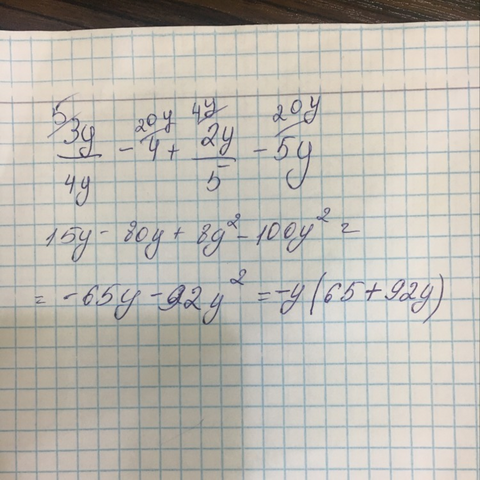 5/ 20y/ 4y/ 20y/
3y/4y - 4 + 2y/5 - 5y
15y - 80y + 8y² - 100y² =
= -65y - 92y² = -y(65 + 92y)